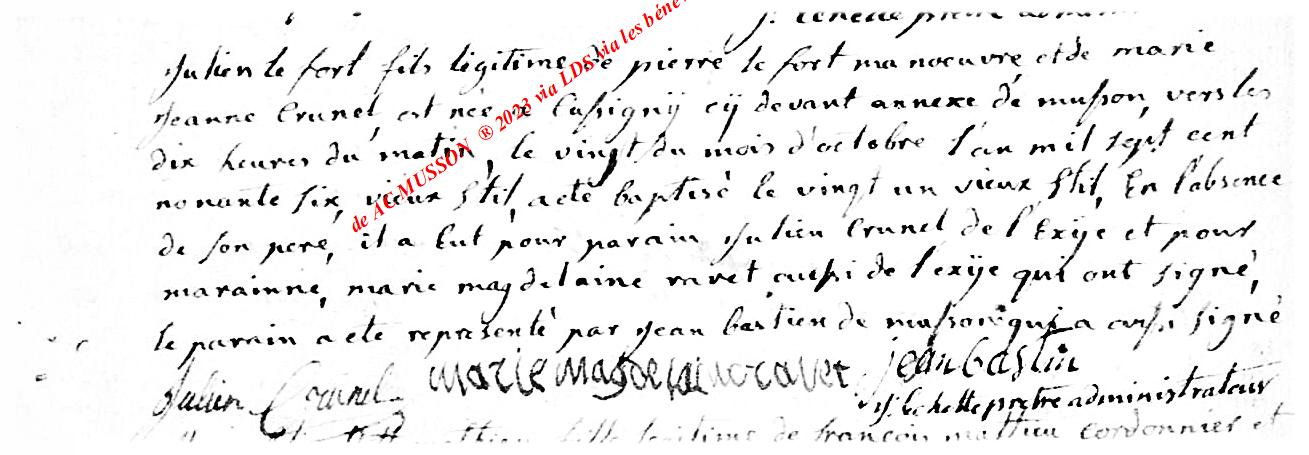 julien le fort fils légitime de pierre le fort manoeuvre et de marie
jeanne Crunel, est née a Cussigny cy devant annexe de musson, vers les
dix heures du matin, le vingt du mois d'octobre l'an mil sept cent
nonante six, vieux stil, a eté baptisé le vingt un vieux stil, En l'absence
de son pere, il a Eut pour parain julien Crunel de l'Exije et pour
marainne, marie magdelaine ravet aussi de l'exije qui ont signé,
le parain a ete representé par jean bastien de musson qui a aussi signé
julien Crunel marie magdelaine ravet jean bastin
prêtre administrateur
légitime de françois mathieu cordonnier et
de ACGMUSSON ® 2023 via LDS via les béné